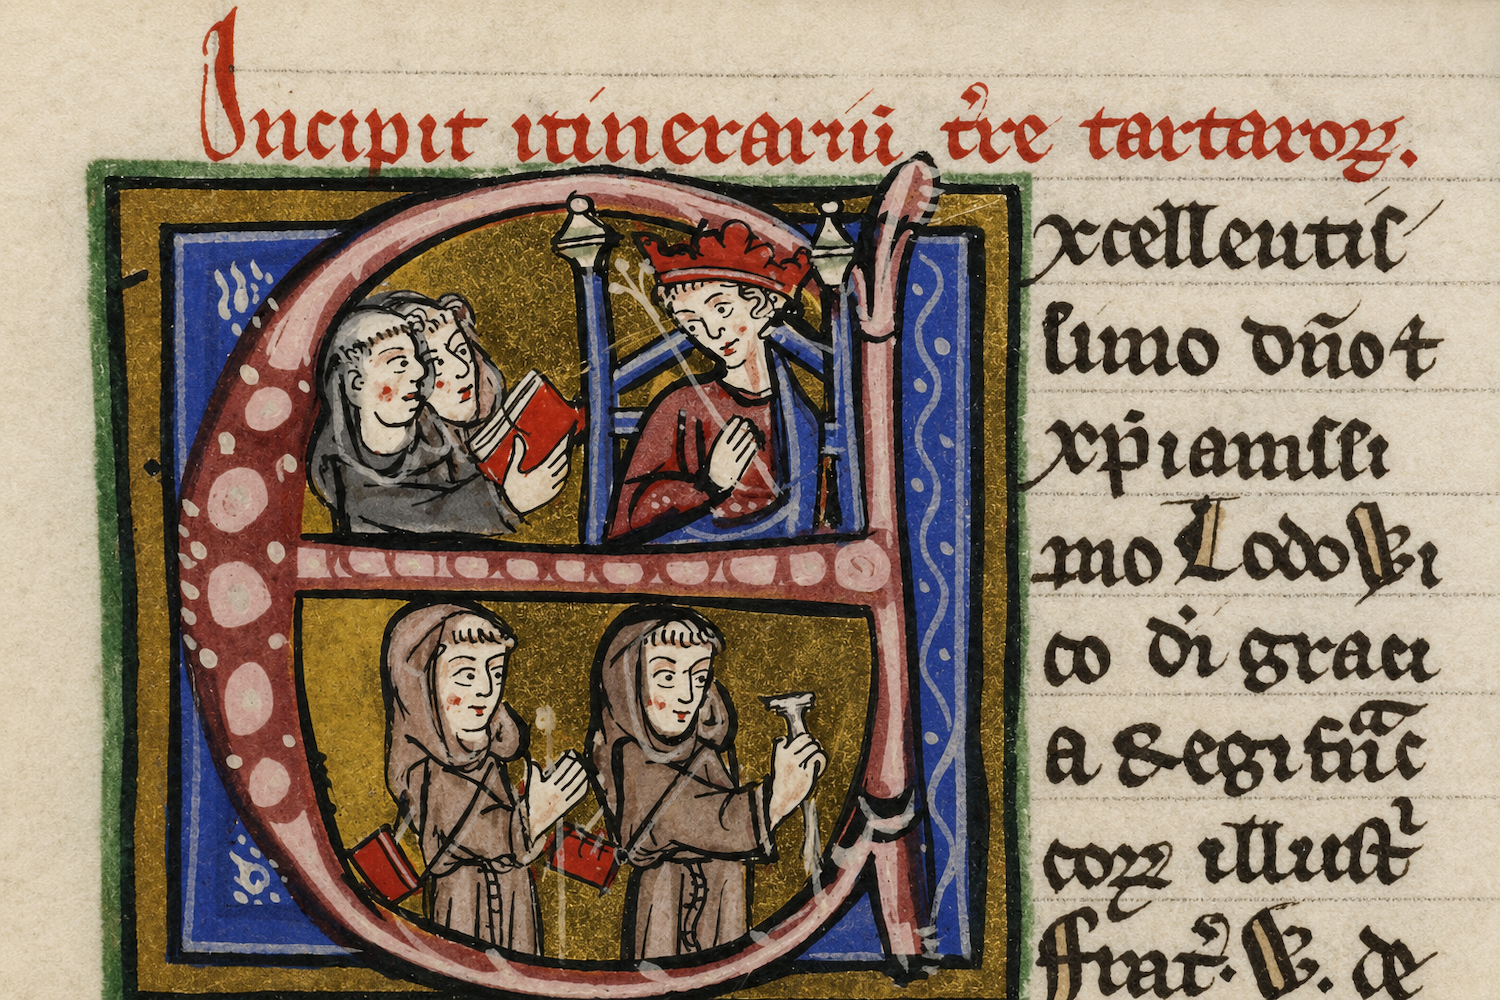 Incipit itinerariū t̕re tartaroꝝ.
xcellentis
simo dn̄o ⁊
xp̄ianissi
mo Lodowi
co di graci
a Regi franc̄
coꝝ illust
ffrat̕. W. de